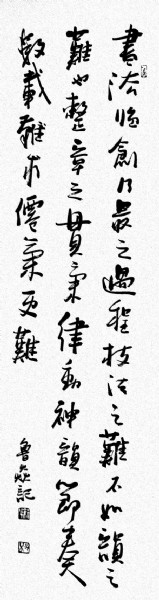 書法臨創乃最之過程技法之難不如韻之
難也整章之貫氣律動神韻節奏
數載難求僊氣更難
魯
記